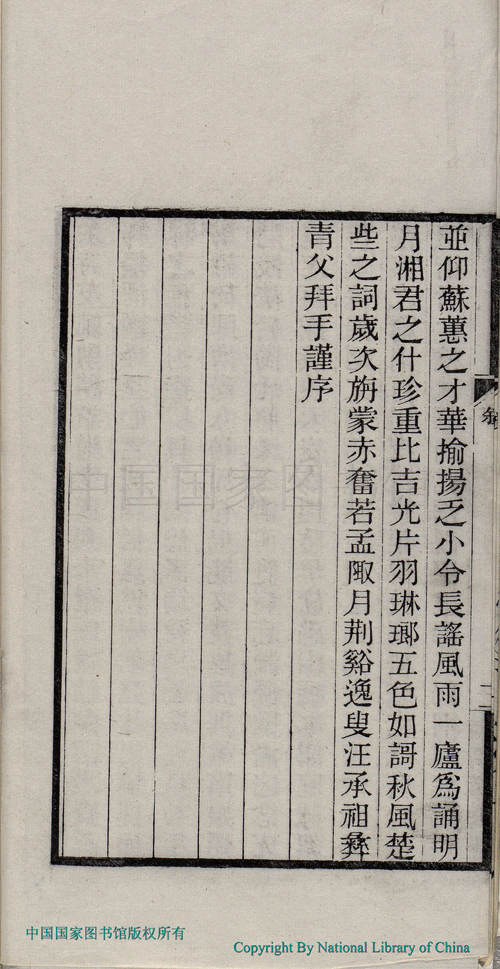 並仰蘇蕙之才華揄揚乏小令長謠風雨一廬爲誦明
月湘君之什珍重比吉光片羽琳瑯五色如謌秋風楚
些之詞歲次旃蒙赤奮若孟陬月荆谿逸叟汪承祖彝
青父拜手謹序
中国国家图
中国国家图书馆版权所有
Copyright By National Library of China